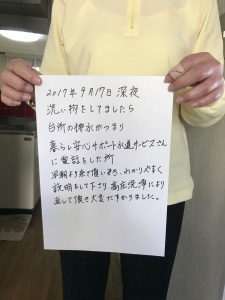 2017年9月17日 深夜
洗い物をしてましたら
台所の排水がつまり
暮らし安心サポート水道サービスさん
に電話をした所
早朝より来て頂いき、わかりやすく
説明をして下さり、高圧洗浄により
直して頂き大変たすかりました。